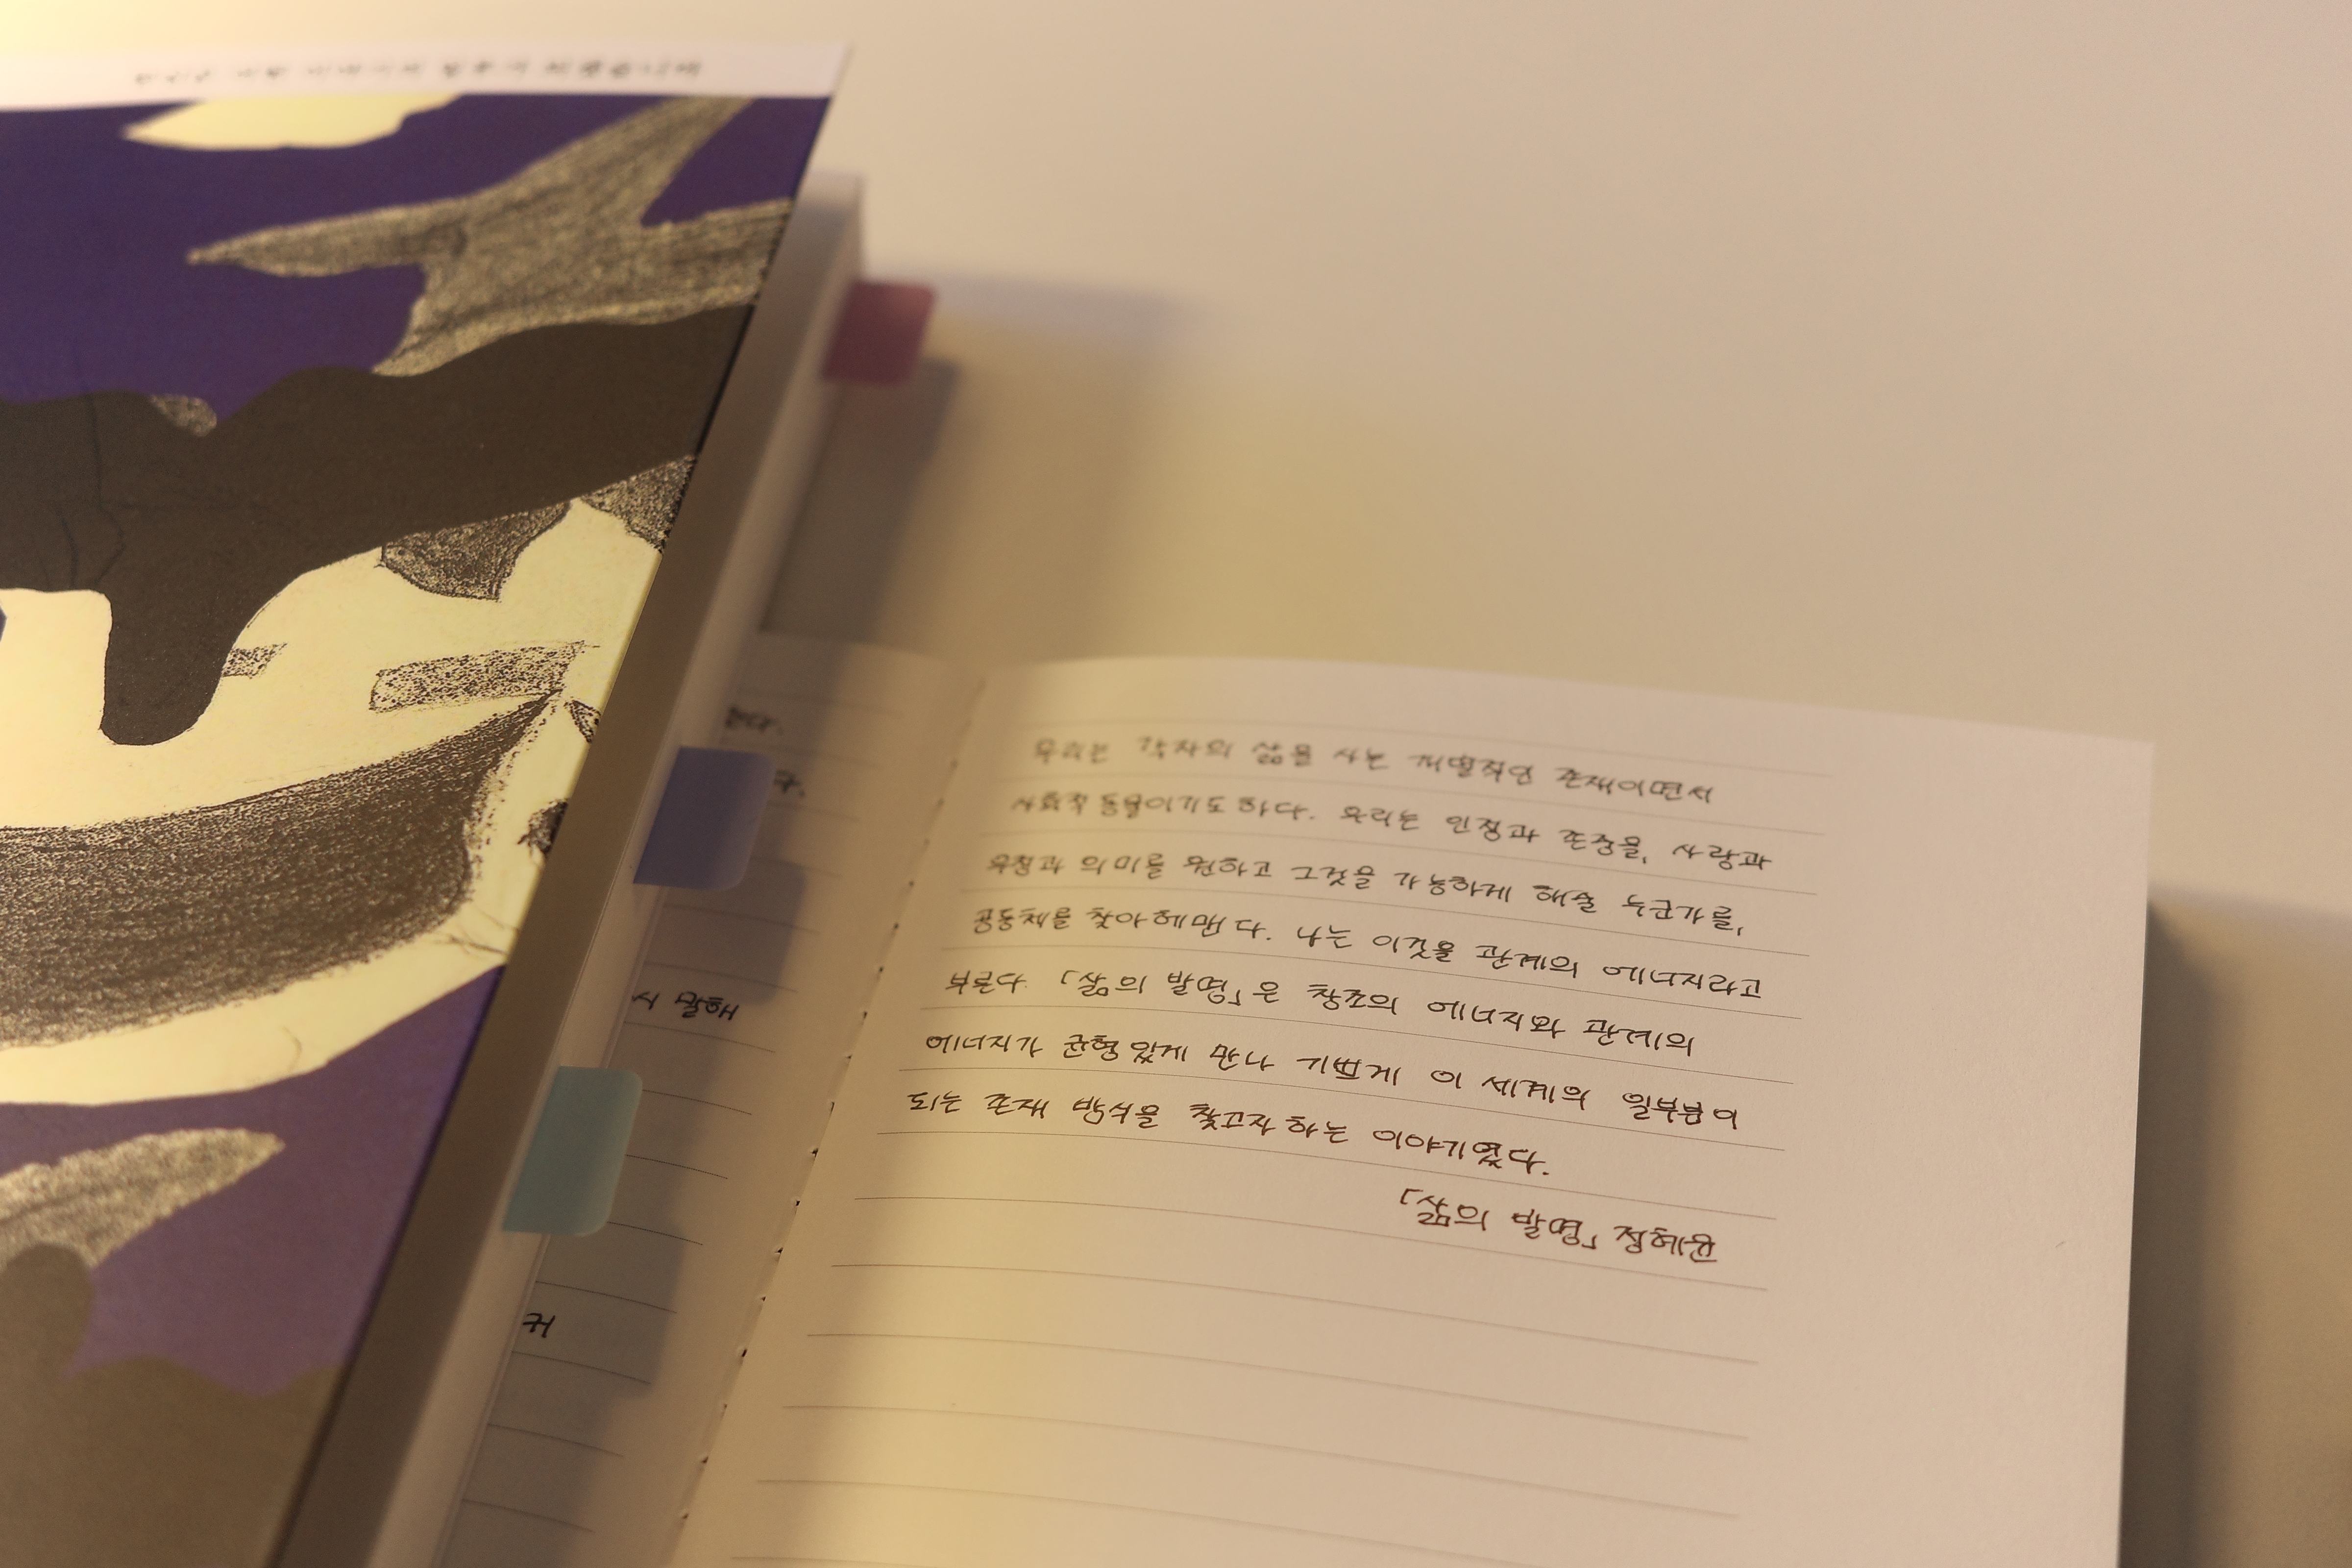 우리는 각자의 삶을 사는 개별적인 존재이면서
사회적 동물이기도 하다. 우리는 인정과 존중을, 사랑과
우정과 의미를 원하고 그것을 가능하게 해줄 누군가를,
공동체를 찾아 헤맨다. 나는 이것을 관계의 에너지라고
부른다. 「삶의 발명」은 창조의 에너지와 관계의
에너지가 균형있게 만나 기쁘게 이 세계의 일부분이
되는 존재 방식을 찾고자 하는 이야기였다.
「삶의 발명」 정혜윤
시 말해
커